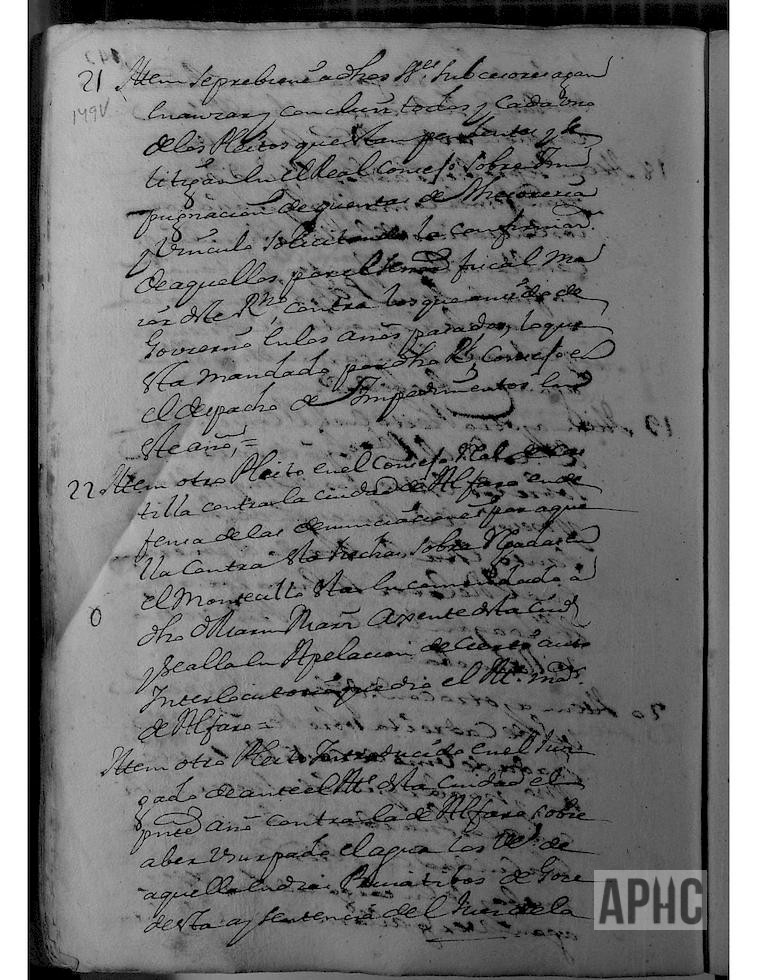 21 Yttem se prebiene a dhos ss.es subcesores agan
evaquar y concluir todos y cada uno
de los Pleitos que estan pendientes y se
litigan en el Real Consejo sobre Im
pugnacion de quentas de Thesoreria
y Vinculo solicitando la confirmaz.on
de aquellos por el señor fiscal
este R.no, contra los que an sido de
Govierno en los años pasados, lo que
esta mandado por dho R.l Consejo
el despacho de Impedimentos en
este año, =
22 Yttem otro Pleito en el Consejo R.l de Cas
tilla contra la ciudad de Alfaro en de
fensa de las denunciaciones por aque
lla contra esta hechas, sobre
el Montecillo esta encomendado a
dho Marin Axente desta Ciud
y se alla en Apelacion de cierto auto
Interlocutorio que dio el Al.e m.or
de Alfaro =
Yttem otro Pleito Introducido en el Juz
gado de ante el Al.e desta ciudad el
pnte año contra la de Alfaro sobre
aber usurpado el agua los Vez.s de
aquella Ciudad Pribatibos de Goze
desta ay sentencia del Juez de la
149V
0
APHC